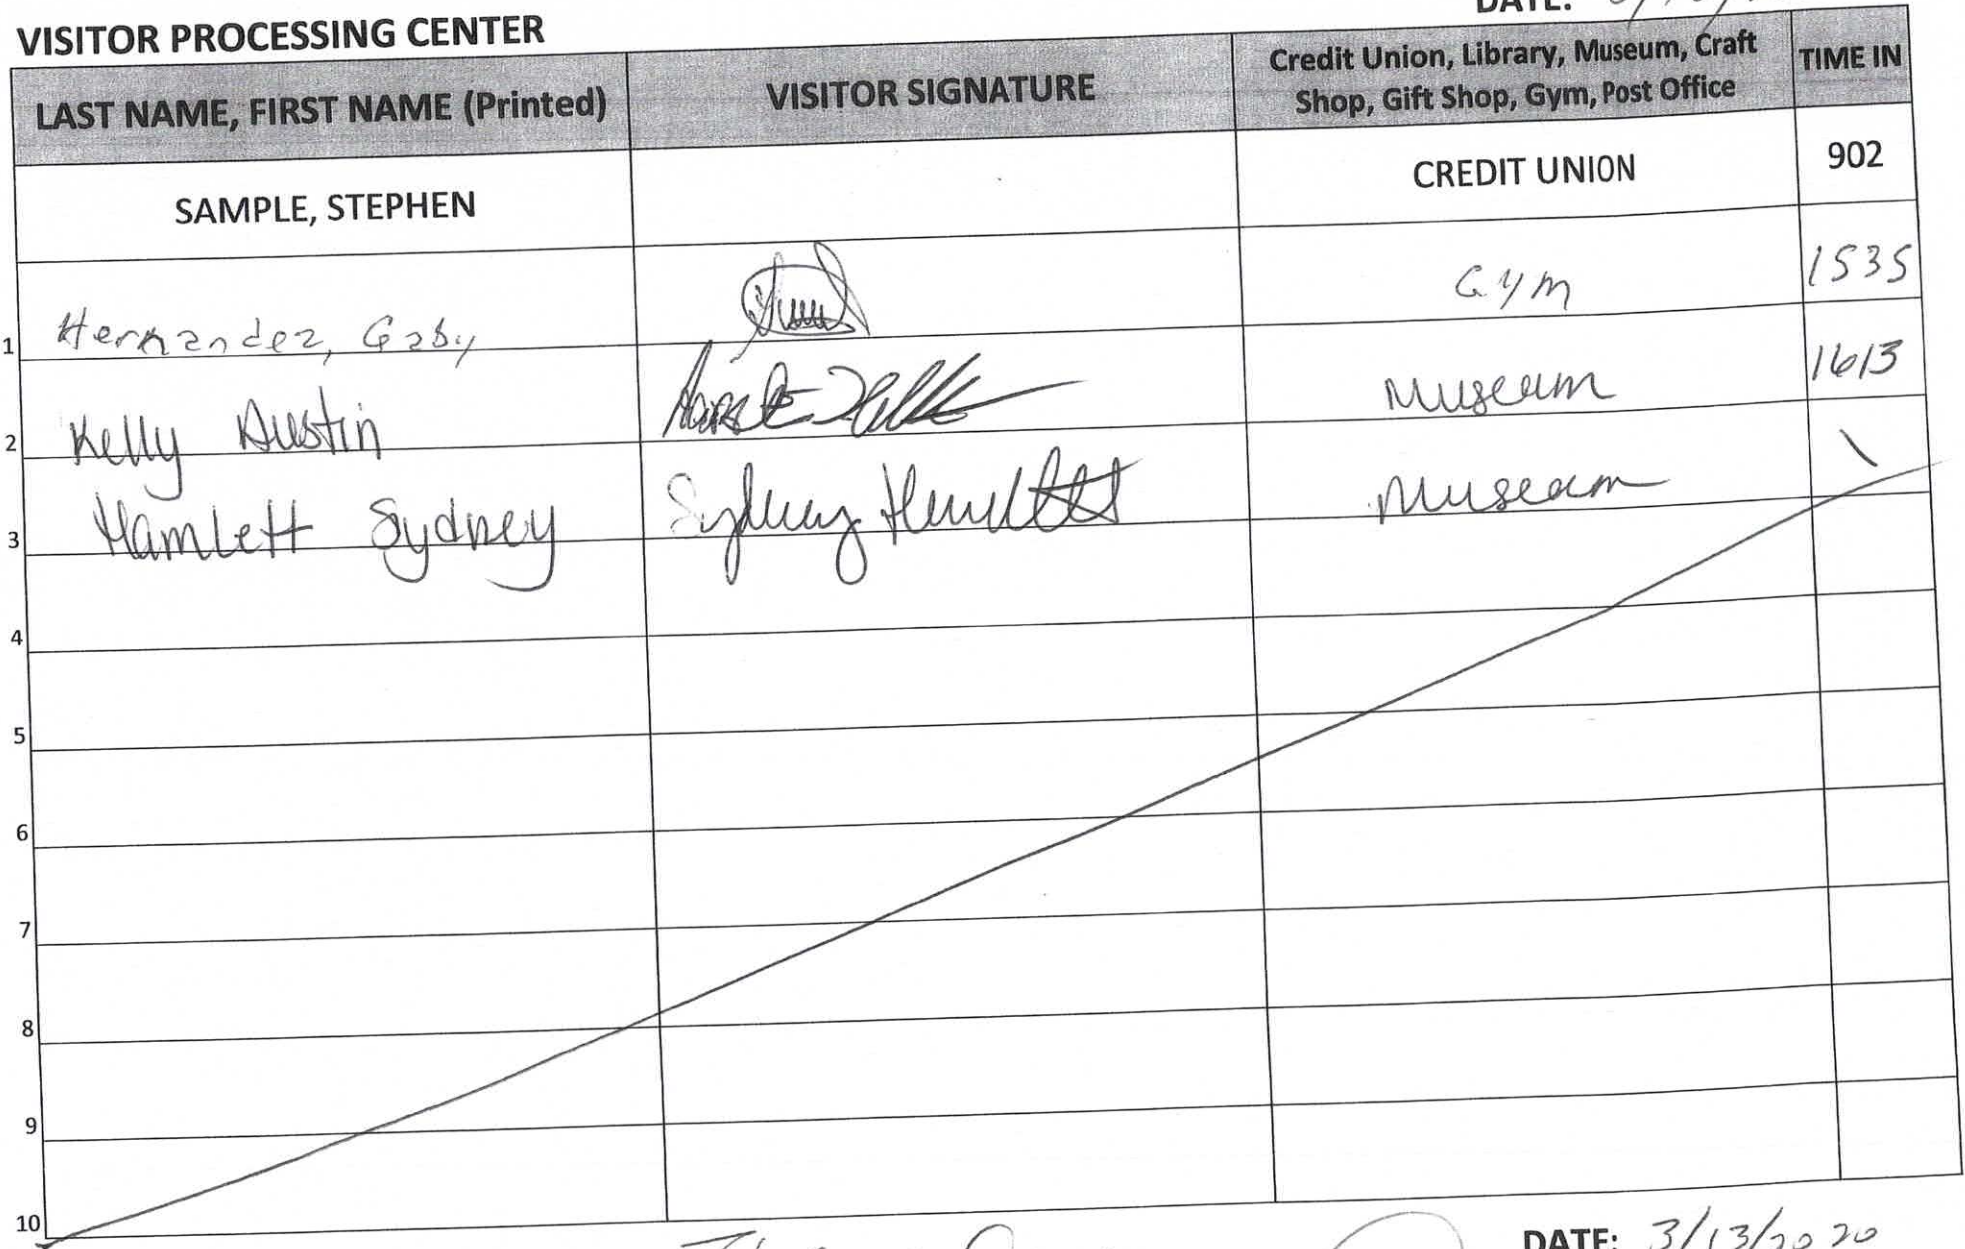 DATE:
VISITOR PROCESSING CENTER
LAST NAME, FIRST NAME (Printed) VISITOR SIGNATURE Credit Union, Library, Museum, Craft Shop, Gift Shop, Gym, Post Office TIME IN
SAMPLE, STEPHEN CREDIT UNION 902
1 Hernandez, Gaby Gym 1535
2 Kelly Austin Museum 1613
3 Hamlett Sydney Sydney Hamlett Museum \
4
5
6
7
8
9
10
DATE: 3/13/2020